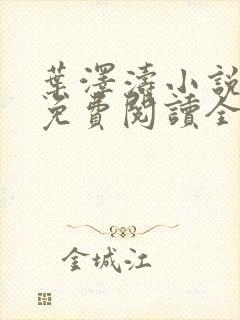 葉澤濤小說
免費閱讀全
金城江